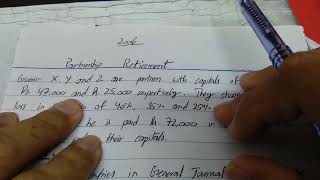 2006
Partnership Retirement
Given:- X, Y and Z are partners with capitals of
Rs. 47,000 and Rs. 25,000 respectively. They share
loss in of 40%, 35% and 25%.
he is paid Rs. 72,000 in
their capitals.
entries in General Journal